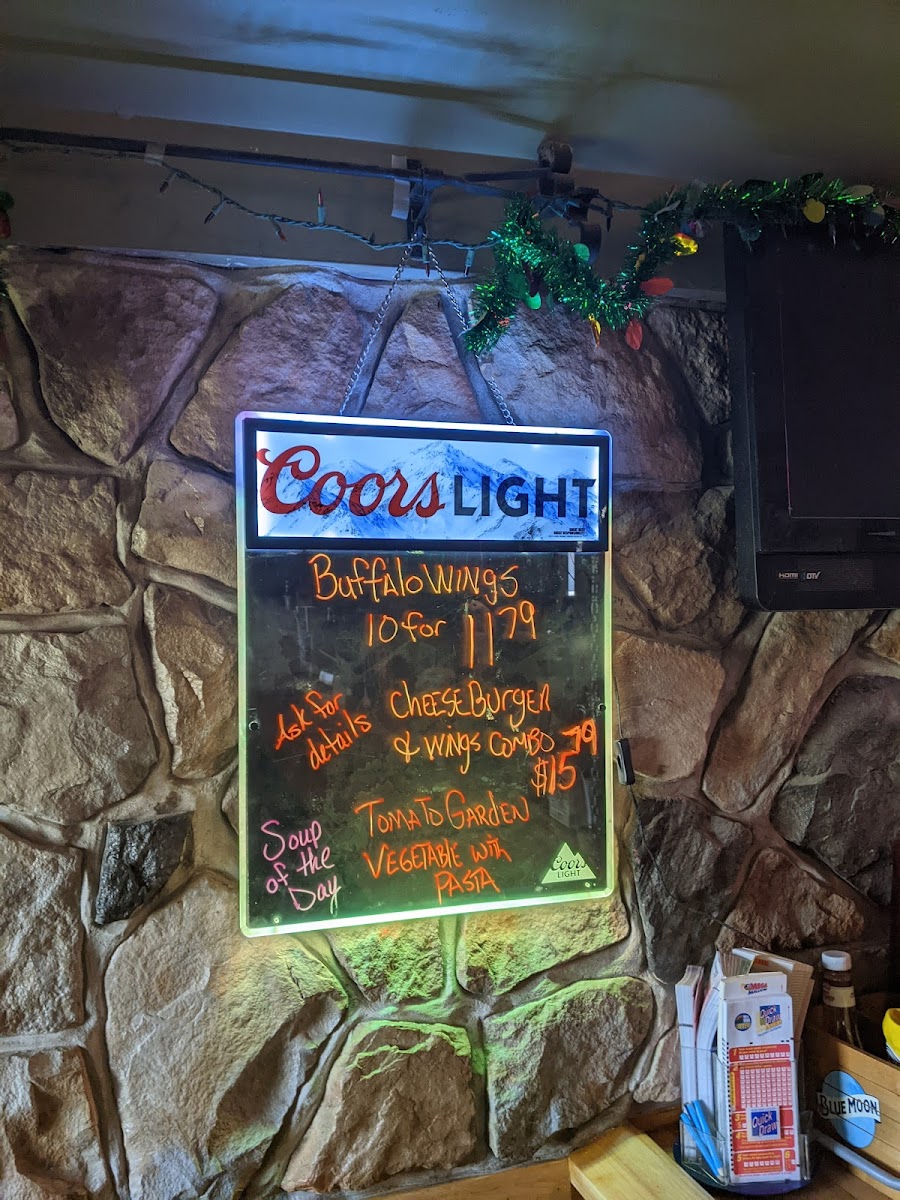 Coors LIGHT
Buffalo WINGS
10 for 11 79
Ask for
details
CHEESE BURGER
& WINGS COMBO
$15 79
Soup
of the
Day
TOMATO GARDEN
VEGETABLE with
PASTA
Coors
LIGHT
HDMI DTV
MEGA
Quick
Draw
Quick
Draw
BLUE MOON